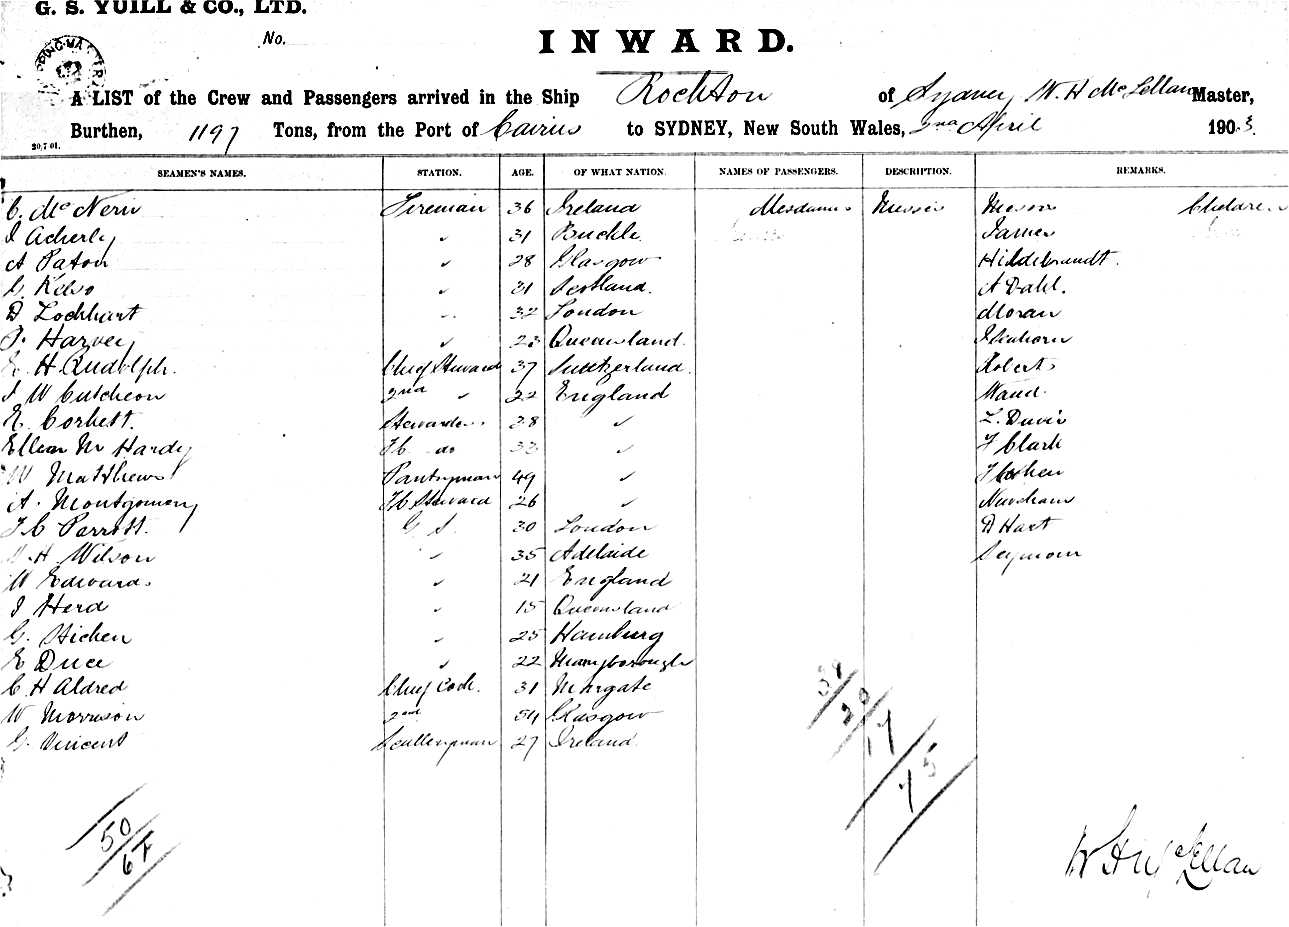 G. S. YUILL & CO., LTD.
No.
INWARD.
A LIST of the Crew and Passengers arrived in the Ship Rockton of Sydney W. H McLellan Master,
Burthen, 1197 Tons, from the Port of Cairns to SYDNEY, New South Wales, 2nd April 1903
20.7.01.
SEAMEN'S NAMES. STATION. AGE. OF WHAT NATION. NAMES OF PASSENGERS. DESCRIPTION. REMARKS.
C. McNern Fireman 36 Ireland Mesdames Messrs Mason Children
J Acherley " 31 Buckle James
A Paton " 28 Glasgow Hildebrandt.
G. Kelso " 31 Scotland. A Dahl.
D Lockhart " 32 London Moran
P. Harvey " 23 Queensland.
H Rudolph. Chief Steward 37 Switzerland. Roberts
J W Cutcheon 2nd " 22 England Wand
E. Corbett. Stewardess 38 " L. Davis
Ellen M Hardy F C do 33 " F Clark
W Matthews Pantryman 49 "
A. Montgomery F C Steward 26 " Newham
F C Parrott. G S. 30 London D Hart
H Wilson " 35 Adelaide Seymour
W Edwards " 21 England
J Herd " 15 Queensland
G. Hichen " 25 Hamburg
E Duce " 22 Maryborough
C H Aldred Chief Cook. 31 Margate
W Morrison 2nd 54 Glasgow
G. Vincent Scullery man 27 Ireland.
20
17
75
50
67
W H McLellan